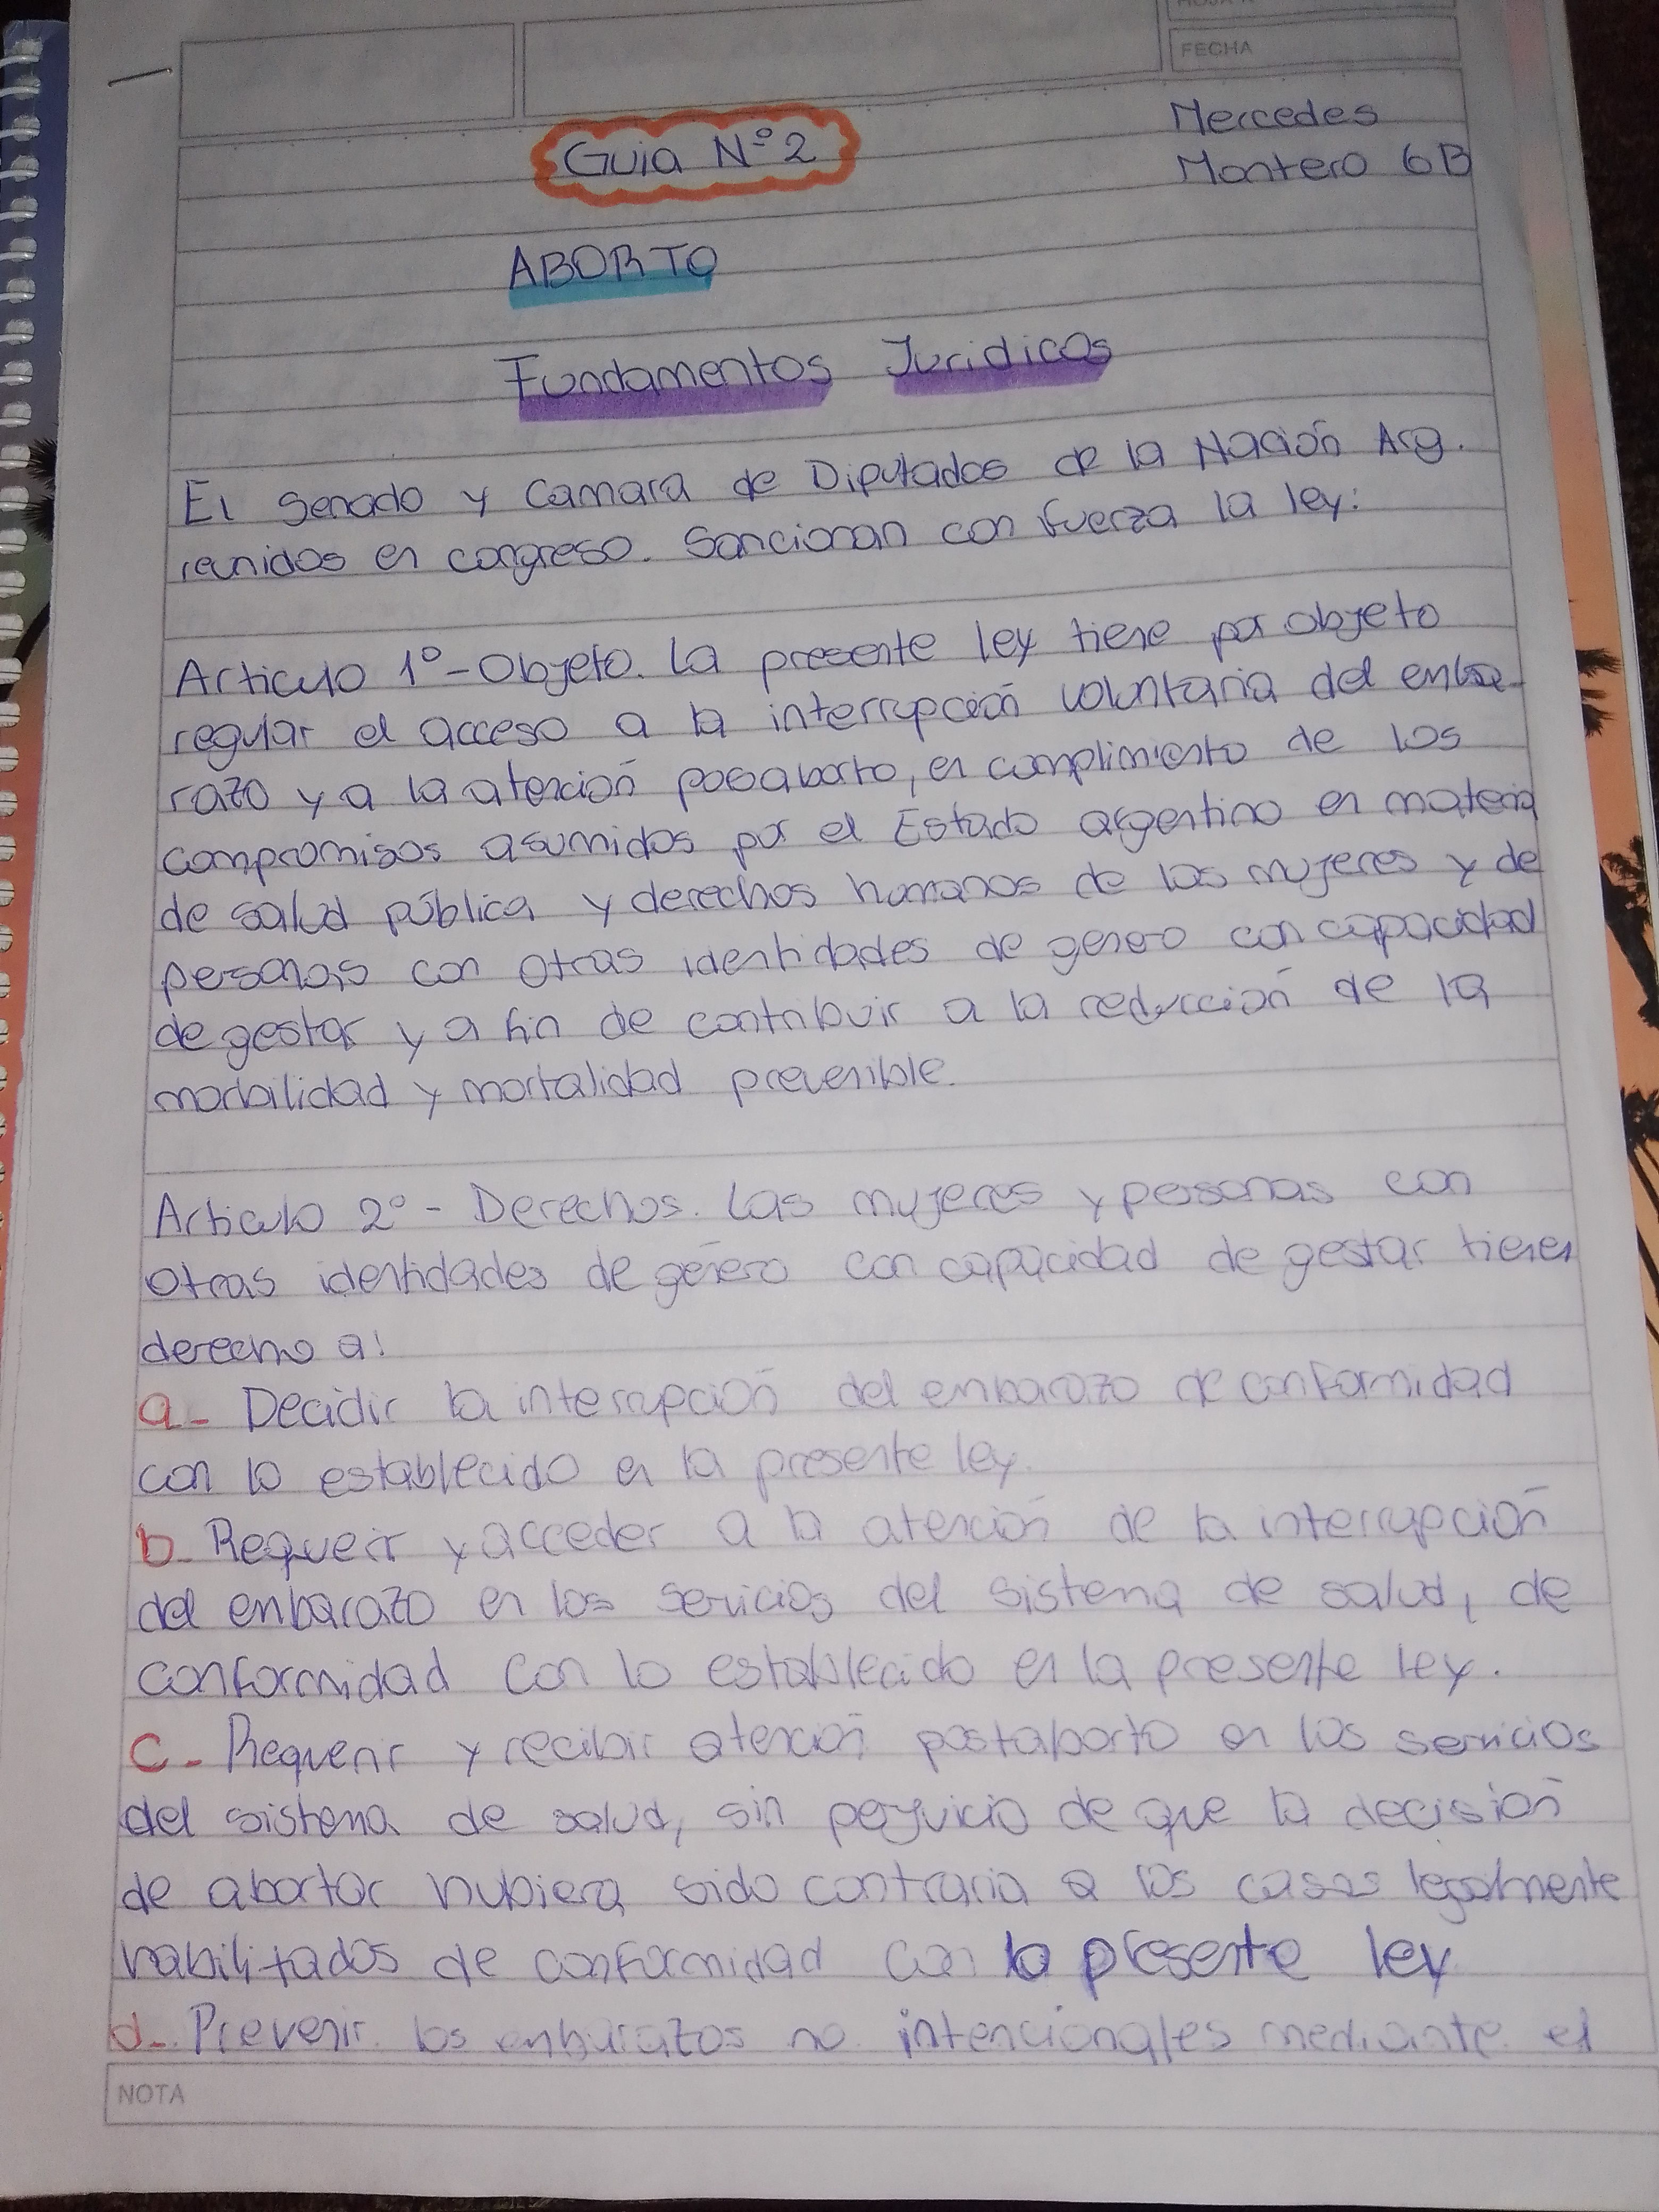 HOJA N°
FECHA
Mercedes
Guia N° 2
Montero 6B
ABORTO
Fundamentos Juridicos
El Senado y Camara de Diputados de la Nación Arg.
reunidos en congreso. Sancionan con fuerza la ley:
Articulo 1° - Objeto. La presente ley tiene por objeto
regular el acceso a la interrupción voluntaria del emba-
razo y a la atención posaborto, en complimiento de los
compromisos asumidos por el Estado argentino en materia
de salud pública y derechos humanos de las mujeres y de
personas con otras identidades de genero con capacidad
de gestar y a fin de contribuir a la reducción de la
morbilidad y mortalidad prevenible.
Articulo 2° - Derechos. Las mujeres y personas con
otras identidades de género con capacidad de gestar tienen
derecho a:
a- Decidir la interrupción del embarazo de conformidad
con lo establecido en la presente ley.
b- Requerir y acceder a la atención de la interrupción
del enbarazo en los servicios del sistema de salud, de
conformidad con lo establecido en la presente ley.
c- Requerir y recibir atencion postaborto en los servicios
del sistema de salud, sin perjuicio de que la decisión
de abortar hubiera sido contraria a los casos legalmente
habilitados de conformidad con la presente ley
d- Prevenir los enbarazos no intencionales mediante el
NOTA